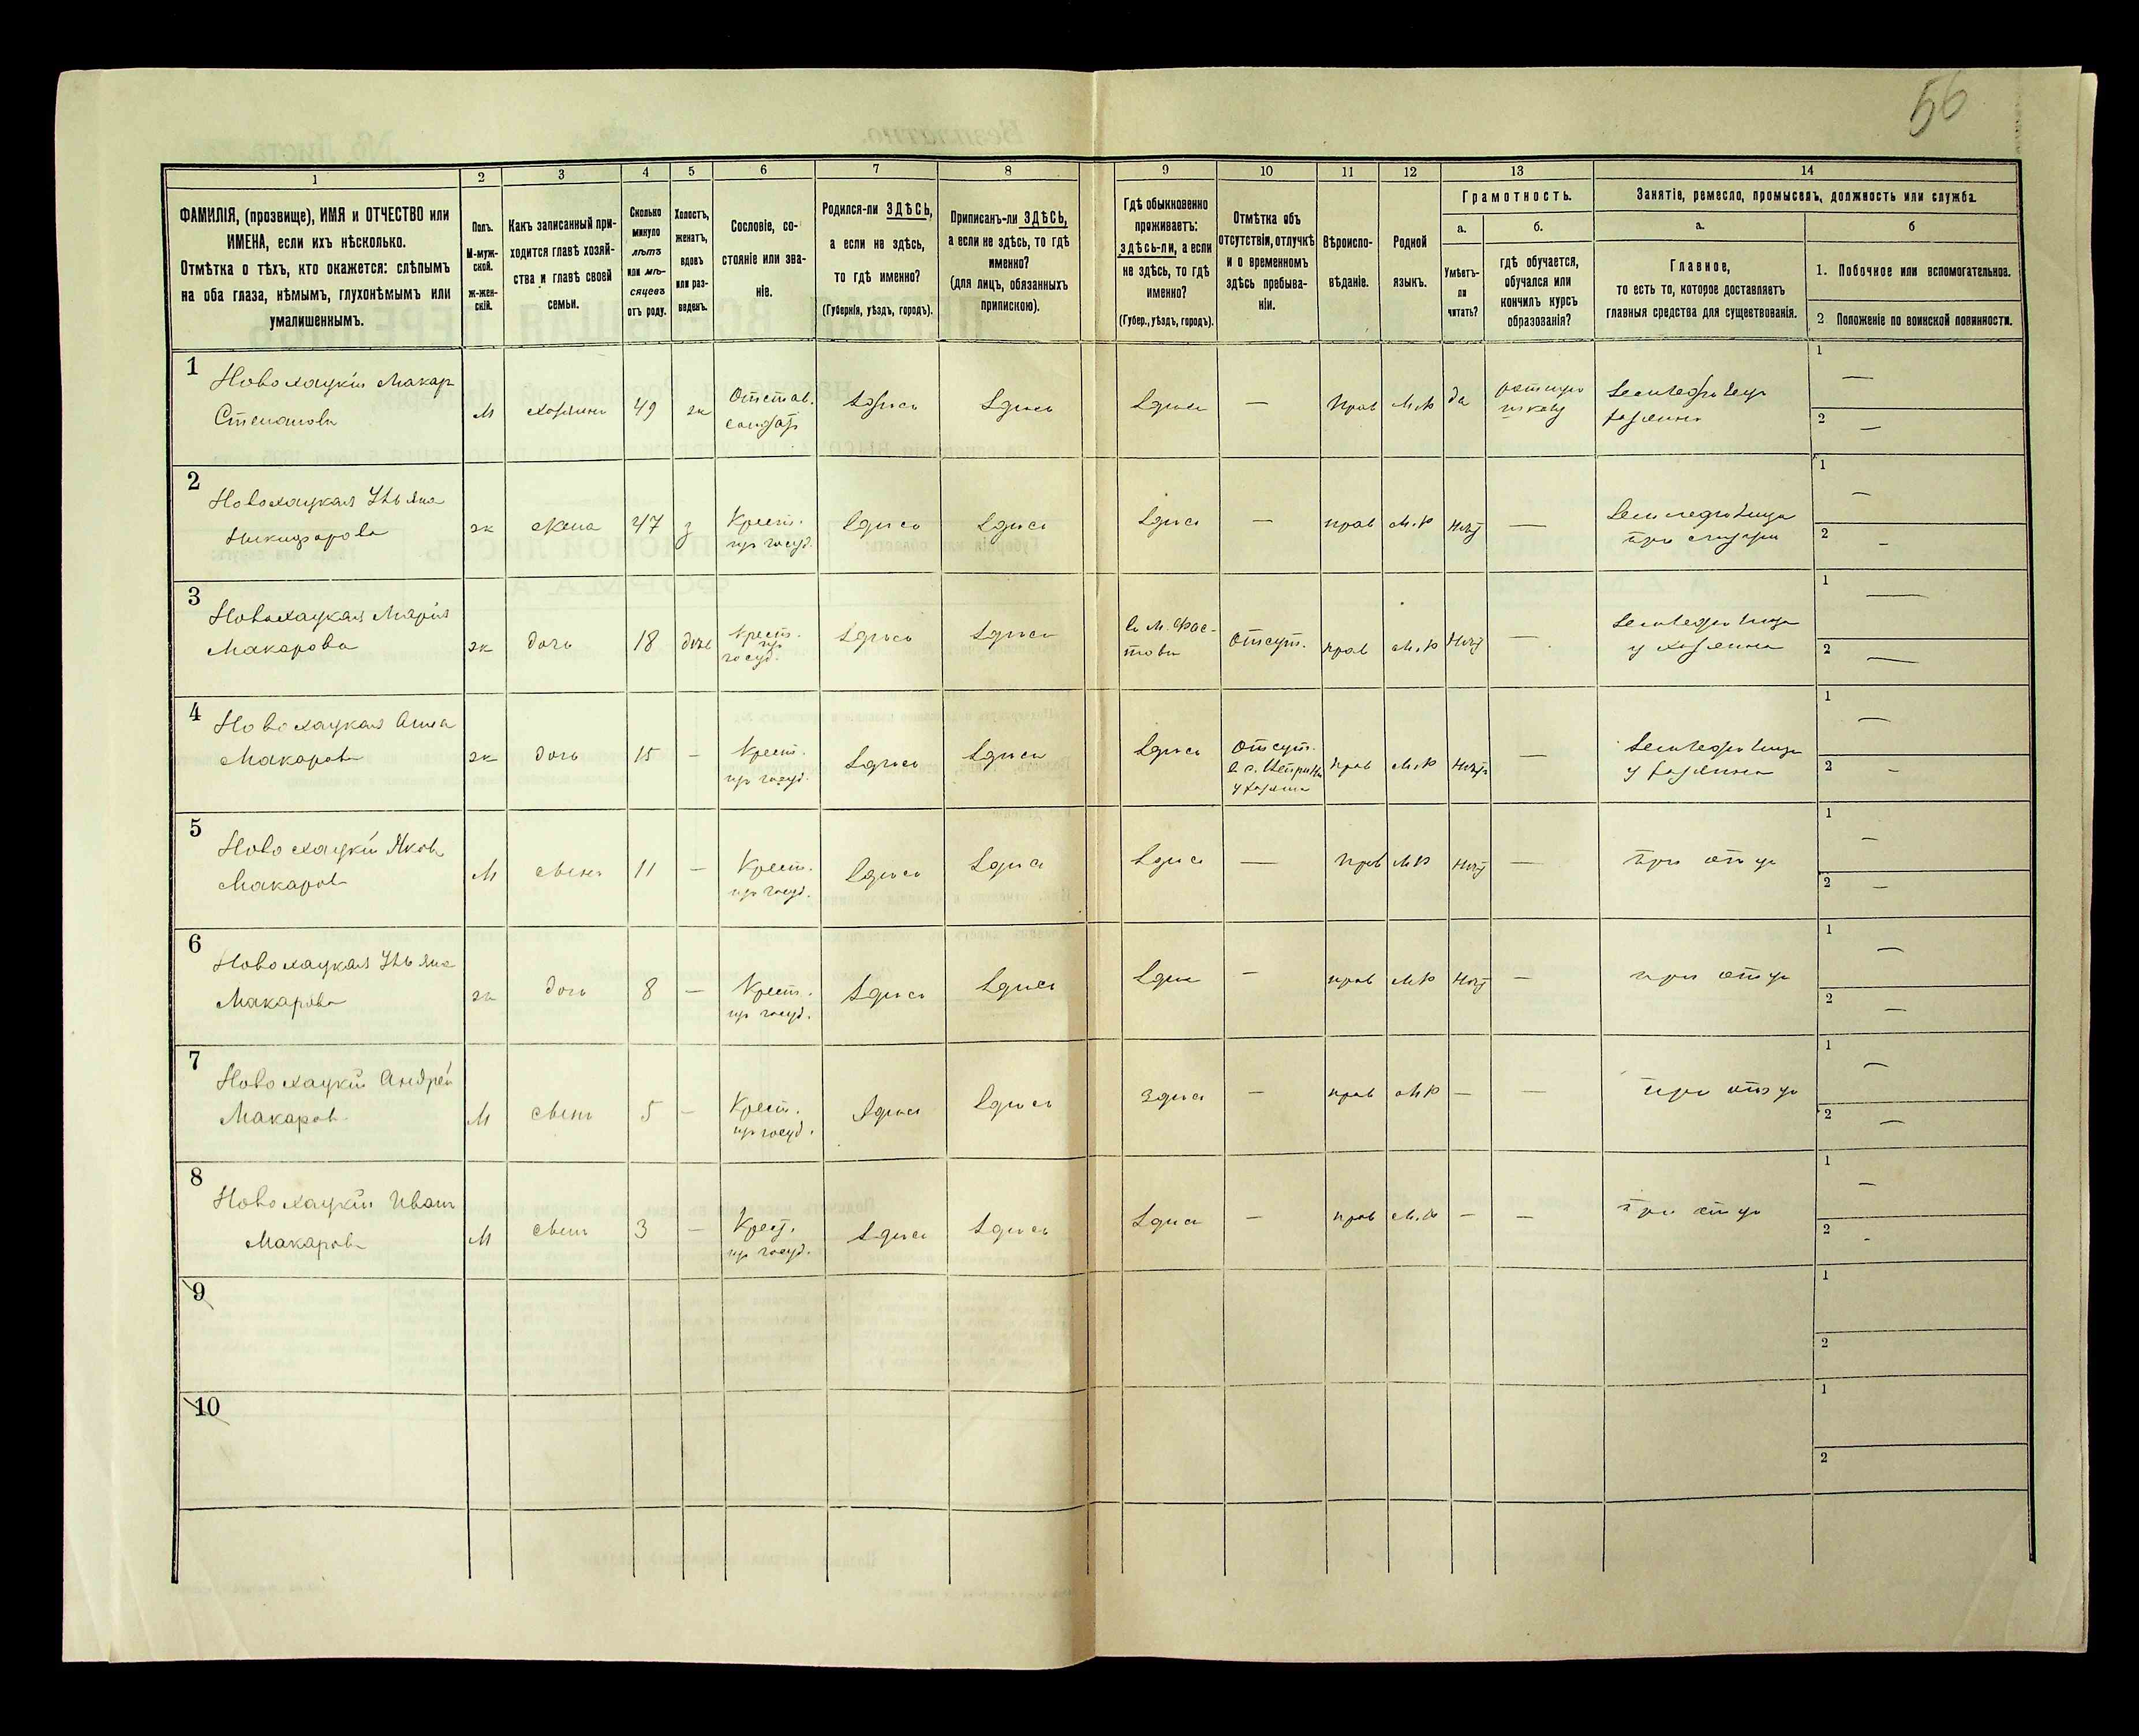 56
1 2 3 4 5 6 7 8 9 10 11 12 13 14
ФАМИЛІЯ, (прозвище), ИМЯ и ОТЧЕСТВО или
ИМЕНА, если ихъ нѣсколько.
Отмѣтка о тѣхъ, кто окажется: слѣпымъ
на оба глаза, нѣмымъ, глухонѣмымъ или
умалишеннымъ.
Полъ.
М-муж-
ской.
Ж-жен-
скій.
Какъ записанный при-
ходится главѣ хозяй-
ства и главѣ своей
семьи.
Сколько
минуло
лѣтъ
или мѣ-
сяцевъ
отъ роду.
Холостъ,
женатъ,
вдовъ
или раз-
веденъ.
Сословіе, со-
стояніе или зва-
ніе.
Родился-ли ЗДѢСЬ,
а если не здѣсь,
то гдѣ именно?
(Губернія, уѣздъ, городъ).
Приписанъ-ли ЗДѢСЬ,
а если не здѣсь, то гдѣ
именно?
(для лицъ, обязанныхъ
припискою).
Гдѣ обыкновенно
проживаетъ:
здѣсь-ли, а если
не здѣсь, то гдѣ
именно?
(Губер., уѣздъ, городъ).
Отмѣтка объ
отсутствіи, отлучкѣ
и о временномъ
здѣсь пребыва-
ніи.
Вѣроиспо-
вѣданіе.
Родной
языкъ.
Грамотность.
а.
Умѣетъ-
ли
читать?
б.
гдѣ обучается,
обучался или
кончилъ курсъ
образованія?
Занятіе, ремесло, промыселъ, должность или служба.
а.
Главное,
то есть то, которое доставляетъ
главныя средства для существованія.
б
1. Побочное или вспомогательное.
2 Положеніе по воинской повинности.
1
Новохацкій Макар
Степанови
М хозяинъ 49 ж Отстав.
солдат
здѣсь здѣсь здѣсь — прав М.р да
земледѣлецъ
хозяинъ
1 —
2 —
2
Новохацкая Ульяна
Никифорова
ж жена 47 з Крест.
из госуд.
здѣсь здѣсь здѣсь — прав М.р нѣт —
1 —
2 —
3
Новохацкая Марія
Макарова
ж дочь 18 Крест.
из
госуд.
здѣсь здѣсь в М. Фас-
тови
Отсут. прав М.р нѣт —
у хозяина
1 —
2 —
4
Новохацкая Анна
Макарова
ж дочь 15 — Крест.
из госуд.
здѣсь здѣсь здѣсь Отсут.
у хозяина
прав М.р нѣт —
у хозяина
1 —
2 —
5
Новохацкій Яковъ
Макаров
М сынъ 11 — Крест.
из госуд.
здѣсь здѣсь здѣсь — прав М.р нѣт — при отцѣ
1 —
2 —
6
Новохацкая Ульяна
Макарова
ж дочь 8 — Крест.
из госуд.
здѣсь здѣсь здѣсь — прав М.р нѣт — при отцѣ
1 —
2 —
7
Новохацкій Андрей
Макаров
М сынъ 5 — Крест.
из госуд.
здѣсь здѣсь здѣсь — прав М.р — — при отцѣ
1 —
2 —
8
Новохацкій Иванъ
Макаров
М сынъ 3 — Крест.
из госуд.
здѣсь здѣсь здѣсь — прав М.р — — при отцѣ
1 —
2 -
9
1
2
10
1
2